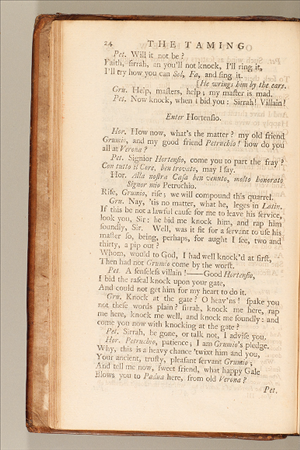 24 THE TAMING
Pet. Will it not be?
Faith, sirrah, an you'll not knock, I'll ring it,
I'll try how you can Sol, Fa, and sing it.
[He wrings him by the ears.
Gru. Help, masters, help; my master is mad.
Pet. Now knock, when I bid you: Sirrah! Villain!
Enter Hortensio.
Hor. How now, what's the matter? my old friend
Grumio, and my good friend Petruchio! how do you
all at Verona?
Pet. Signior Hortensio, come you to part the fray?
Con tutto il Core, ben trovato, may I say.
Hor. Alla nostra Casa ben venuto, molto honorato
Signor mio Petruchio.
Rise, Grumio, rise; we will compound this quarrel.
Gru. Nay, 'tis no matter, what he, leges in Latin.
If this be not a lawful cause for me to leave his service,
look you, Sir: he bid me knock him, and rap him
soundly, Sir. Well, was it fit for a servant to use his
master so, being, perhaps, for aught I see, two and
thirty, a pip out?
Whom, would to God, I had well knock'd at first,
Then had not Grumio come by the worst.
Pet. A senseless villain!——Good Hortensio,
I bid the rascal knock upon your gate,
And could not get him for my heart to do it.
Gru. Knock at the gate? O heav'ns! spake you
not these words plain? sirrah, knock me here, rap
me here, knock me well, and knock me soundly: and
come you now with knocking at the gate?
Pet. Sirrah, be gone, or talk not, I advise you.
Hor. Petruchio, patience; I am Grumio's pledge.
Why, this is a heavy chance 'twixt him and you,
Your ancient, trusty, pleasant servant Grumio;
And tell me now, sweet friend, what happy Gale
Blows you to Padua here, from old Verona?
Pet.